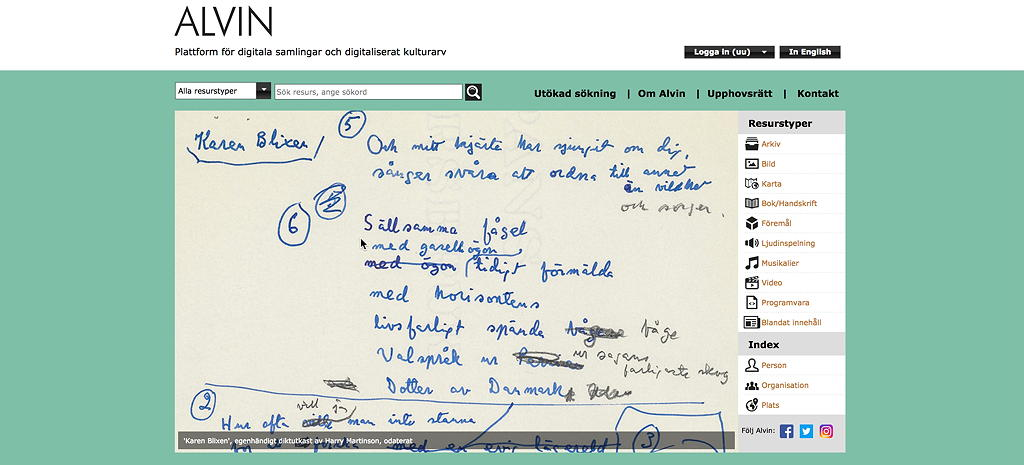 ALVIN
Plattform för digitala samlingar och digitaliserat kulturarv
Logga in (uu)
In English
Alla resurstyper
Sök resurs, ange sökord
Utökad sökning | Om Alvin | Upphovsrätt | Kontakt
Karen Blixen
5
Och mitt hjärta har sjungit om dig,
sånger svåra att ordna till annat
än vildhet
och sorger.
5
6
Sällsamma fågel
med gasellögon
med ögon tidigt förmälda
med horisontens
livsfarligt spända båge
Valspråk ur ur sagans
farligaste skog
Dotter av Danmark
2
vill ju
Hur ofta man inte stanna
med en evig längtan
3
'Karen Blixen', egenhändigt diktutkast av Harry Martinson, odaterat
Resurstyper
Arkiv
Bild
Karta
Bok/Handskrift
Föremål
Ljudinspelning
Musikalier
Video
Programvara
Blandat innehåll
Index
Person
Organisation
Plats
Följ Alvin: